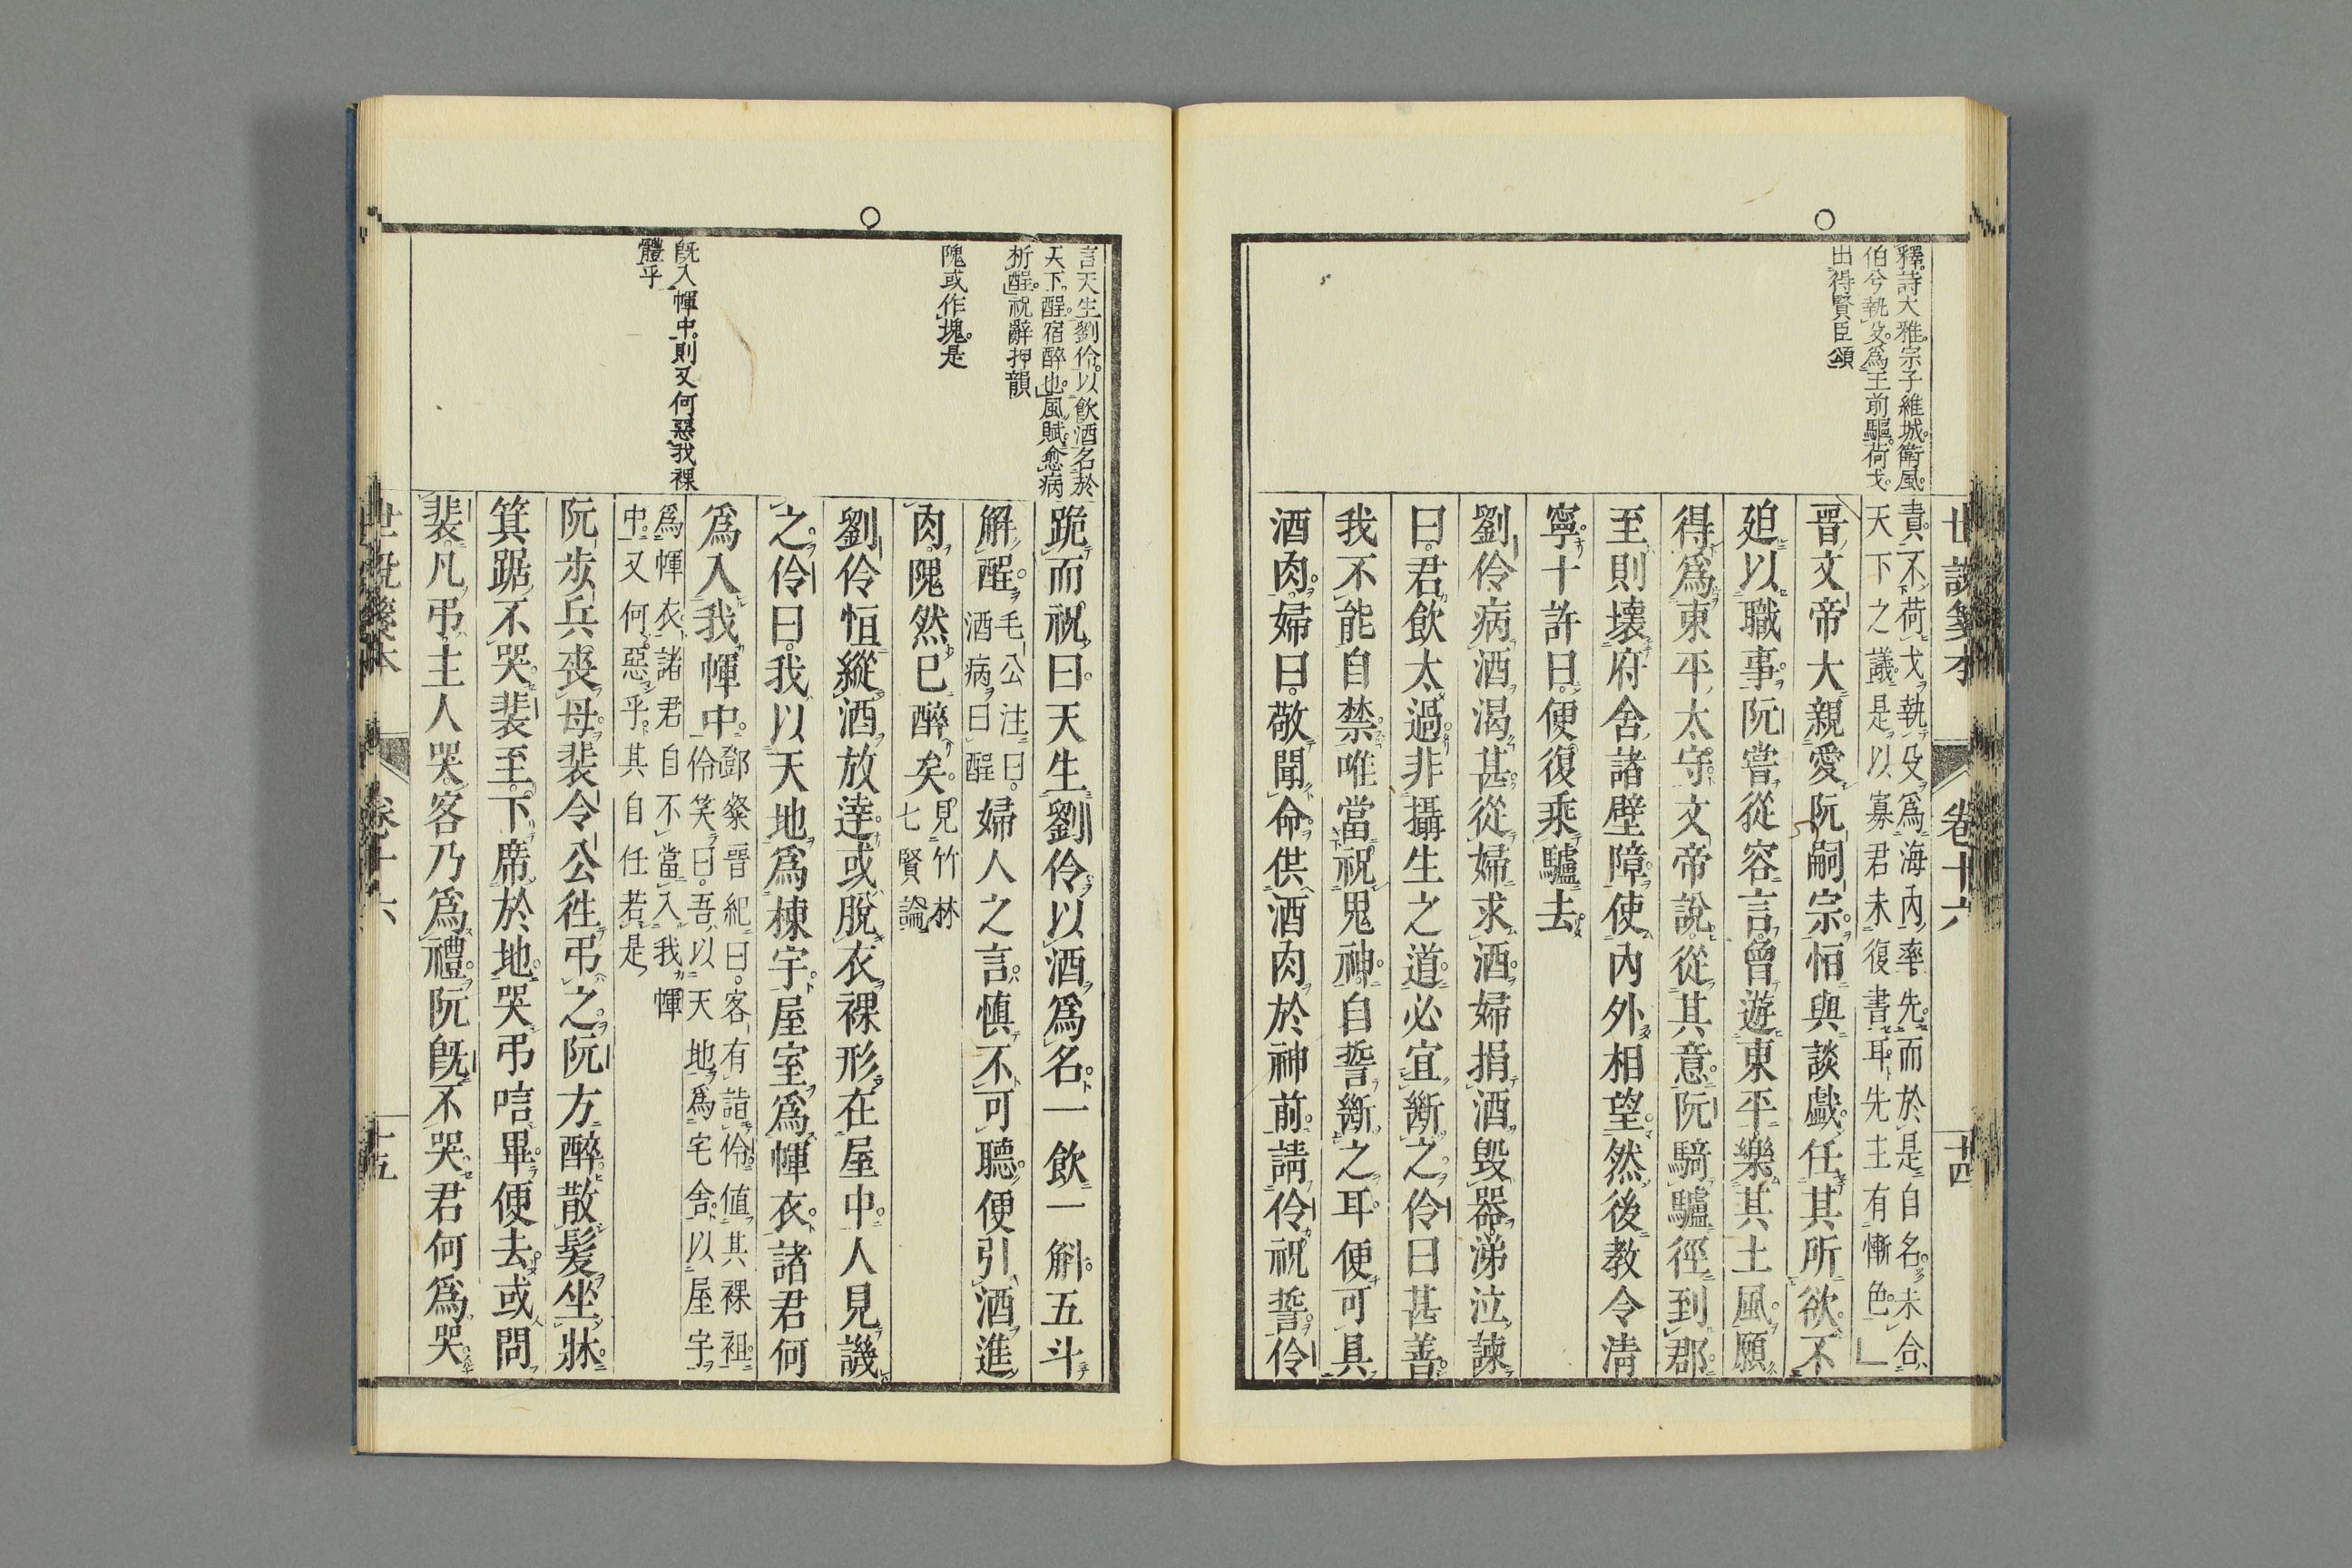 世說箋本 卷十六 十四
釋詩大雅宗子維城衛風
伯兮執殳爲王前驅荷戈
出得賢臣頌
責不荷戈執殳爲海內率先而於是自名未合
天下之議是以寡君未復書耳先主有慚色
晉文帝大親愛阮嗣宗恒與談戲任其所欲不
廹以職事阮嘗從容言曾遊東平樂其土風願
得爲東平太守文帝說從其意阮騎驢徑到郡
至則壊府舍諸壁障使內外相望然後教令淸
寧十許日便復乘驢去
劉伶病酒渴甚從婦求酒婦捐酒毀器涕泣諫
曰君飮太過非攝生之道必宜斷之伶曰甚善
我不能自禁唯當祝鬼神自誓斷之耳便可具
酒肉婦曰敬聞命供酒肉於神前請伶祝誓伶
言天生劉伶以飮酒名於
天下酲宿醉也風賦愈病
析酲祝辭押韻
隗或作塊是
旣入幝中則又何惡我裸
體乎
跪而祝曰天生劉伶以酒爲名一飮一斛五斗
解酲
毛公注曰
酒病曰酲
婦人之言愼不可聽便引酒進
肉隗然已醉矣
見竹林
七賢論
劉伶恒縱酒放達或脫衣裸形在屋中人見譏
之伶曰我以天地爲棟宇屋室爲幝衣諸君何
爲入我幝中
鄧粲晉紀曰客有詣伶値其裸袒
伶笑曰吾以天地爲宅舍以屋宇
爲幝衣諸君自不當入我幝
中又何惡乎其自任若是
阮步兵喪母裴令公徃弔之阮方醉散髮坐牀
箕踞不哭裴至下席於地哭弔唁畢便去或問
裴凡弔主人哭客乃爲禮阮旣不哭君何爲哭
世說箋本 卷十六 十五